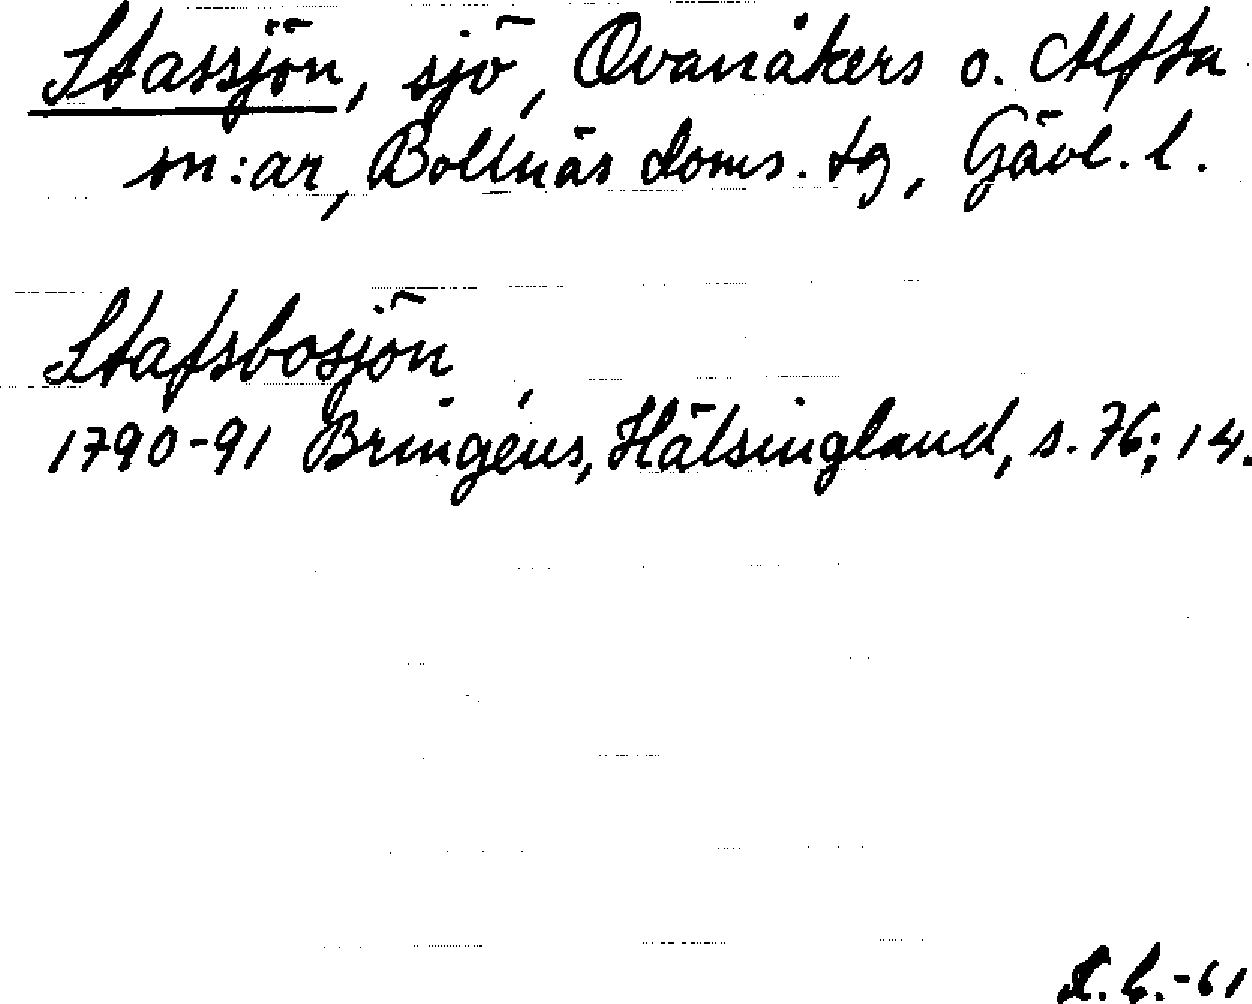 Stassjön, sjö, Ovanåkers o. Alfta
sn:ar, Bollnäs doms. tg, Gävl. l.
Stafsbosjön
1790-91 Bringéus, Hälsingland, s. 76; 14.
-61